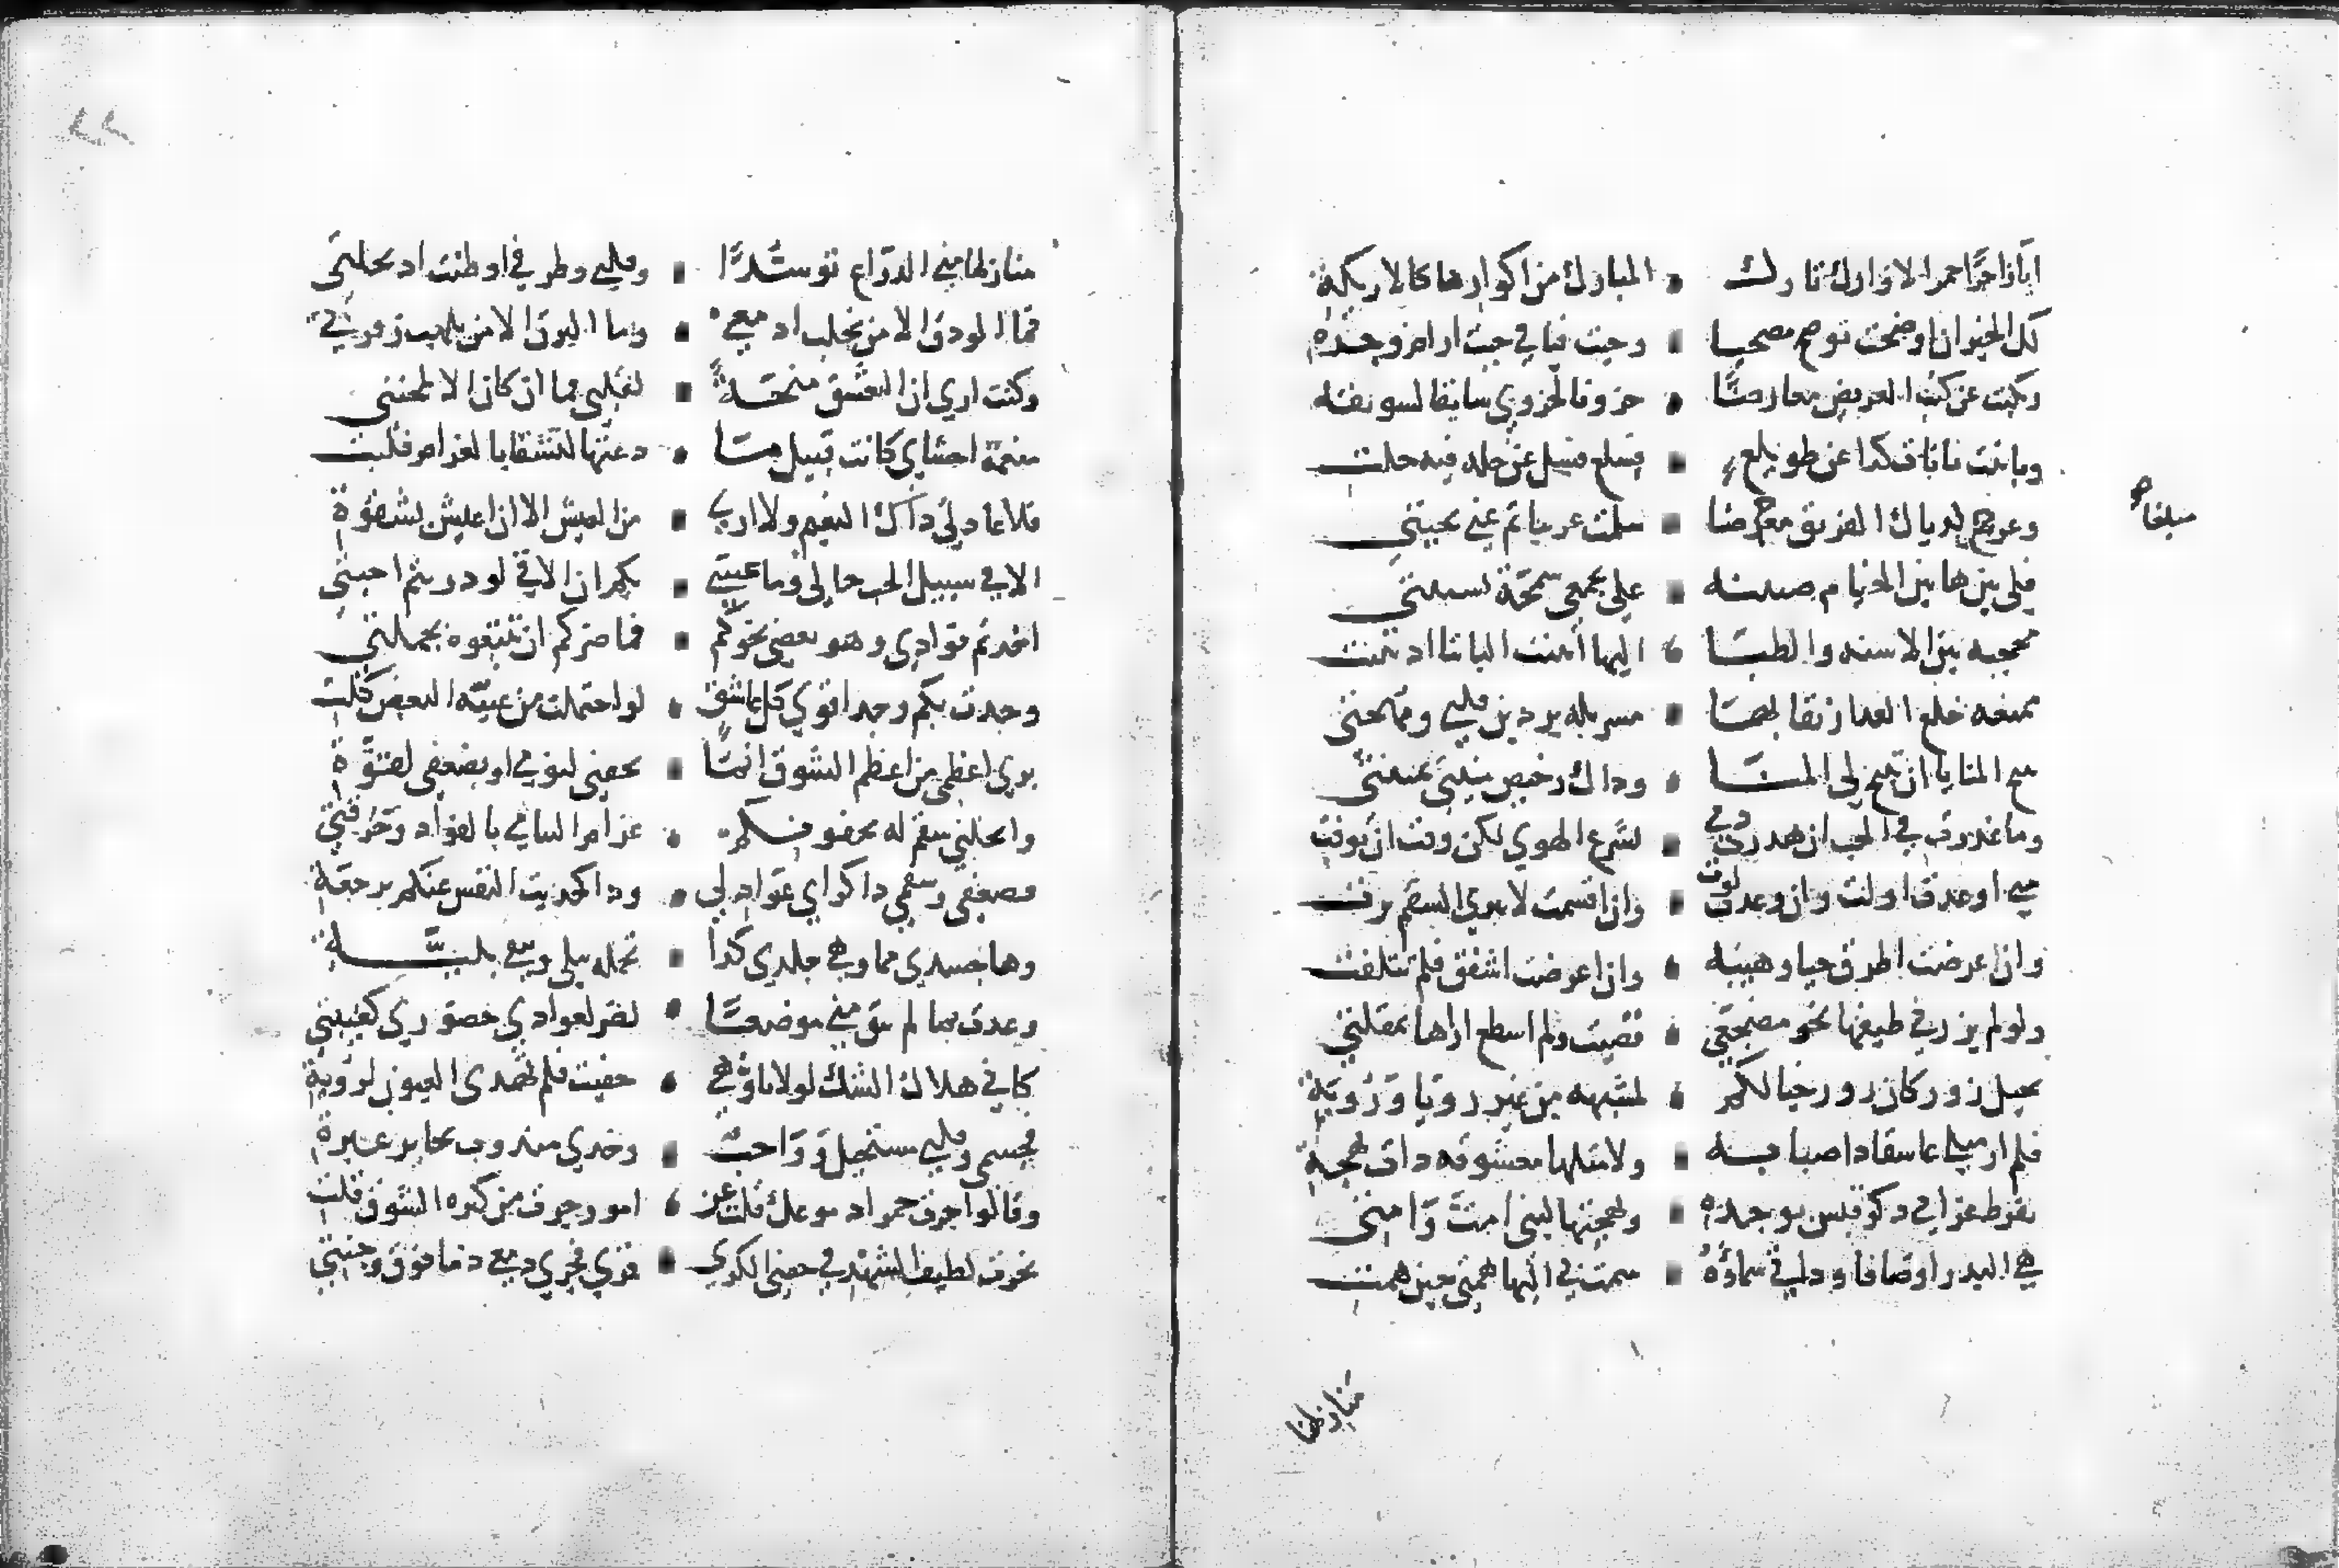 ايا زاجرا حمر الاوارك تارك • الموارك من اكوارها كالاريكة
لك الخير ان اوضحت توضح مصحيا • وجبت فيافي خبت ارام وجرة
ونكبت عن كثب العريض معارضا • حزونا لحزوي سايقا لسويقه
وباينت بانات كذا عن طويلع • بسلع فسل عن حله فيه حلت
وعرج بذياك الفريق معرضا • سلمت عريبا ثم عني تحيتي
مبلغا صح
فلي بين هاتيك الخيام ضنينه • علي بجمعي سمحة بتشتتي
محجبه بين الاسنه والظبا • اليها انثنت البابنا اذ تثنت
ممنعه خلع العذار نقابها • مسربله بردين قلبي ومهجتي
تتيح المنايا اذ تبيح لي المنا • وذاك رخيص منيتي بمنيتي
وما غدرت في الحب ان هدرت دمي • بشرع الهوي لكن وفت ان توفت
متي اوعدت اولت وان وعدت لوت • وان اقسمت لا تبري السقم برت
وان عرضت اطرق حيا وهيبه • وان اعرضت اشفق فلم تتلفت
ولو لم يزرني طيفها نحو مضجعي • قضيت ولم اسطع اراها بمقلتي
تخيل زور كان زور خيالكم • لمشبهه من غير رويا ورؤية
فلم ار مثلي عاشقا ذا صبابه • ولا مثلها معشوقه ذات بهجة
بفرط غرامي ذكر قيس بوجده • وبهجتها لبني امت وامتي
هي البدر اوصافا وذاتي سماؤه • سمت بي اليها همتي حين همت
منازلها
منازلها مني الذراع توسدا • وقلبي وطرفي اوطنت اذ تجلتي
فما الودق الا من تحلب ادمعي • وما البرق الا من تلهب زفرتي
وكنت اري ان التعشق منحة • لقلبي فما ان كان الا لمحنتي
منعمة احشاي كانت قبيل ما • دعتها لتشقا بالغرام فلبت
فلا عاد لي ذاك النعيم ولا اري • من العيش الا ان اعيش بشقوة
الا في سبيل الحب حالي وما عسي • بكم ان الاقي لو دريتم احبتي
اخذتم فوادي وهو بعضي نحوكم • فما ضركم ان تتبعوه بجملتي
وجدت بكم وجدا قوي كل عاشق • لو احتملت من عبئه البعض كلت
بري اعظمي من اعظم الشوق • بجفني لنومي او بضعفي لقوة
وانحلني سقم له بجفونكم • غرام التياعي بالفواد وحرقتي
فضعفي وسقمي ذا كراي عواذلي • وذا كحديث النفس عنكم برجعة
وها جسدي مما وهي جلدي كذا • تحمله يبلي ويبقي بليتة
وعدت بما لم يبق مني موضعا • لضر لعوادي حضوري كغيبتي
كاني هلال الشك لولا تاوهي • خفيت فلم تهدي العيون لرؤية
فجسمي وقلبي مستحيل وواجب • وخدي مندوب بجايز عبرة
وقالوا جرت حمرا دموعك قلت عن • امور جرت من كثره الشوق قلت
نحرت لطيف السهد في جفني الكري • قري فجري دمعي دما فوق وجنتي